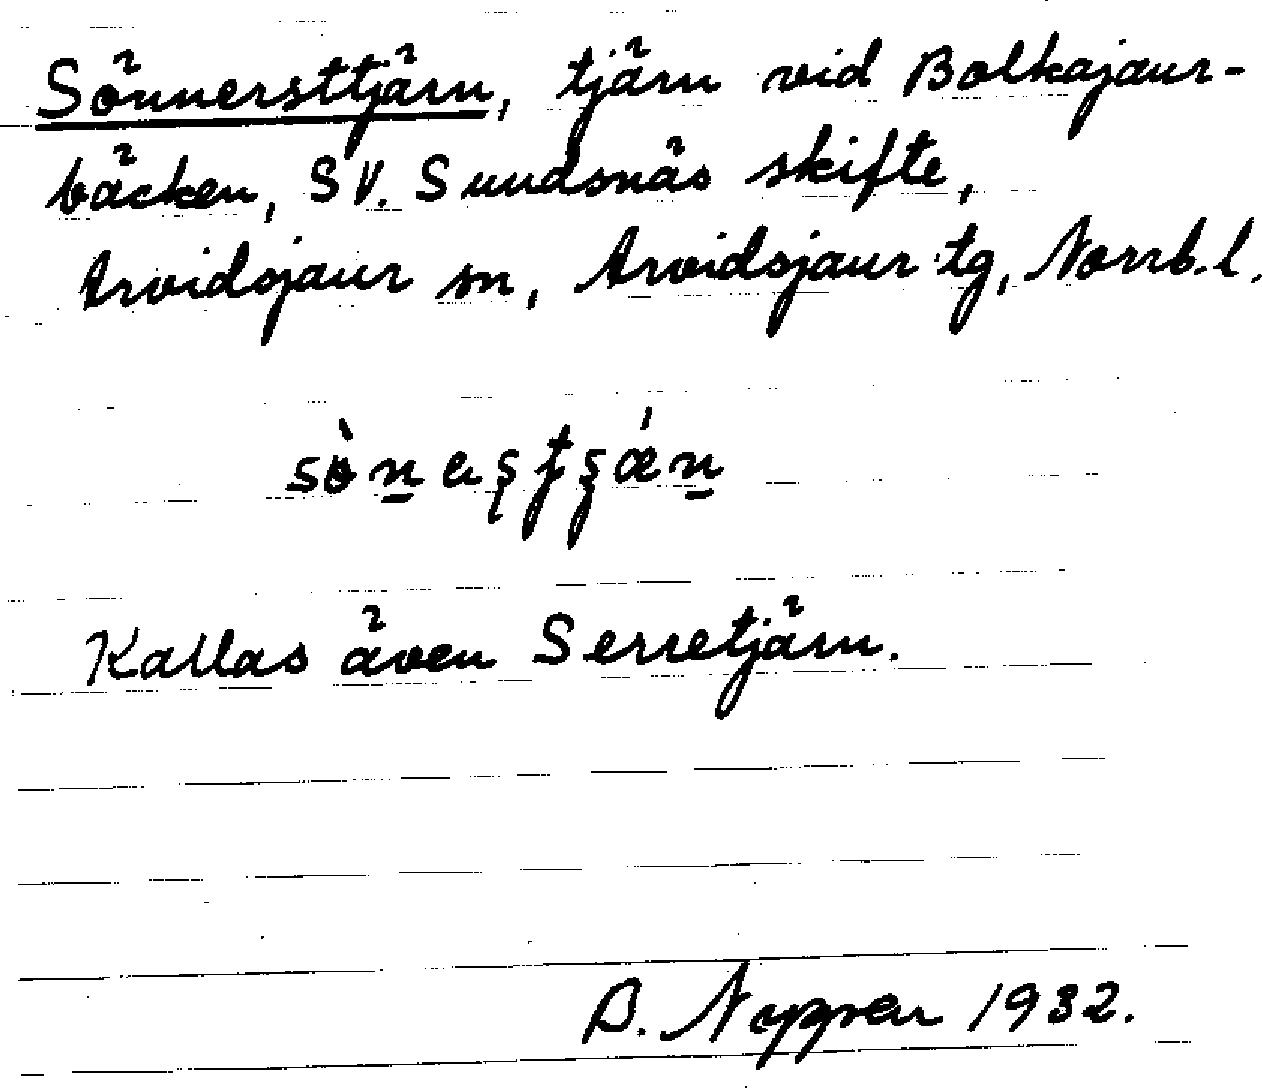 Sönnersttjärn, tjärn vid Bolkajaur-
bäcken, SV. Sundsnäs skifte,
Arvidsjaur sn, Arvidsjaur tg, Norrb. l.
Kallas även Serretjärn.
1932.